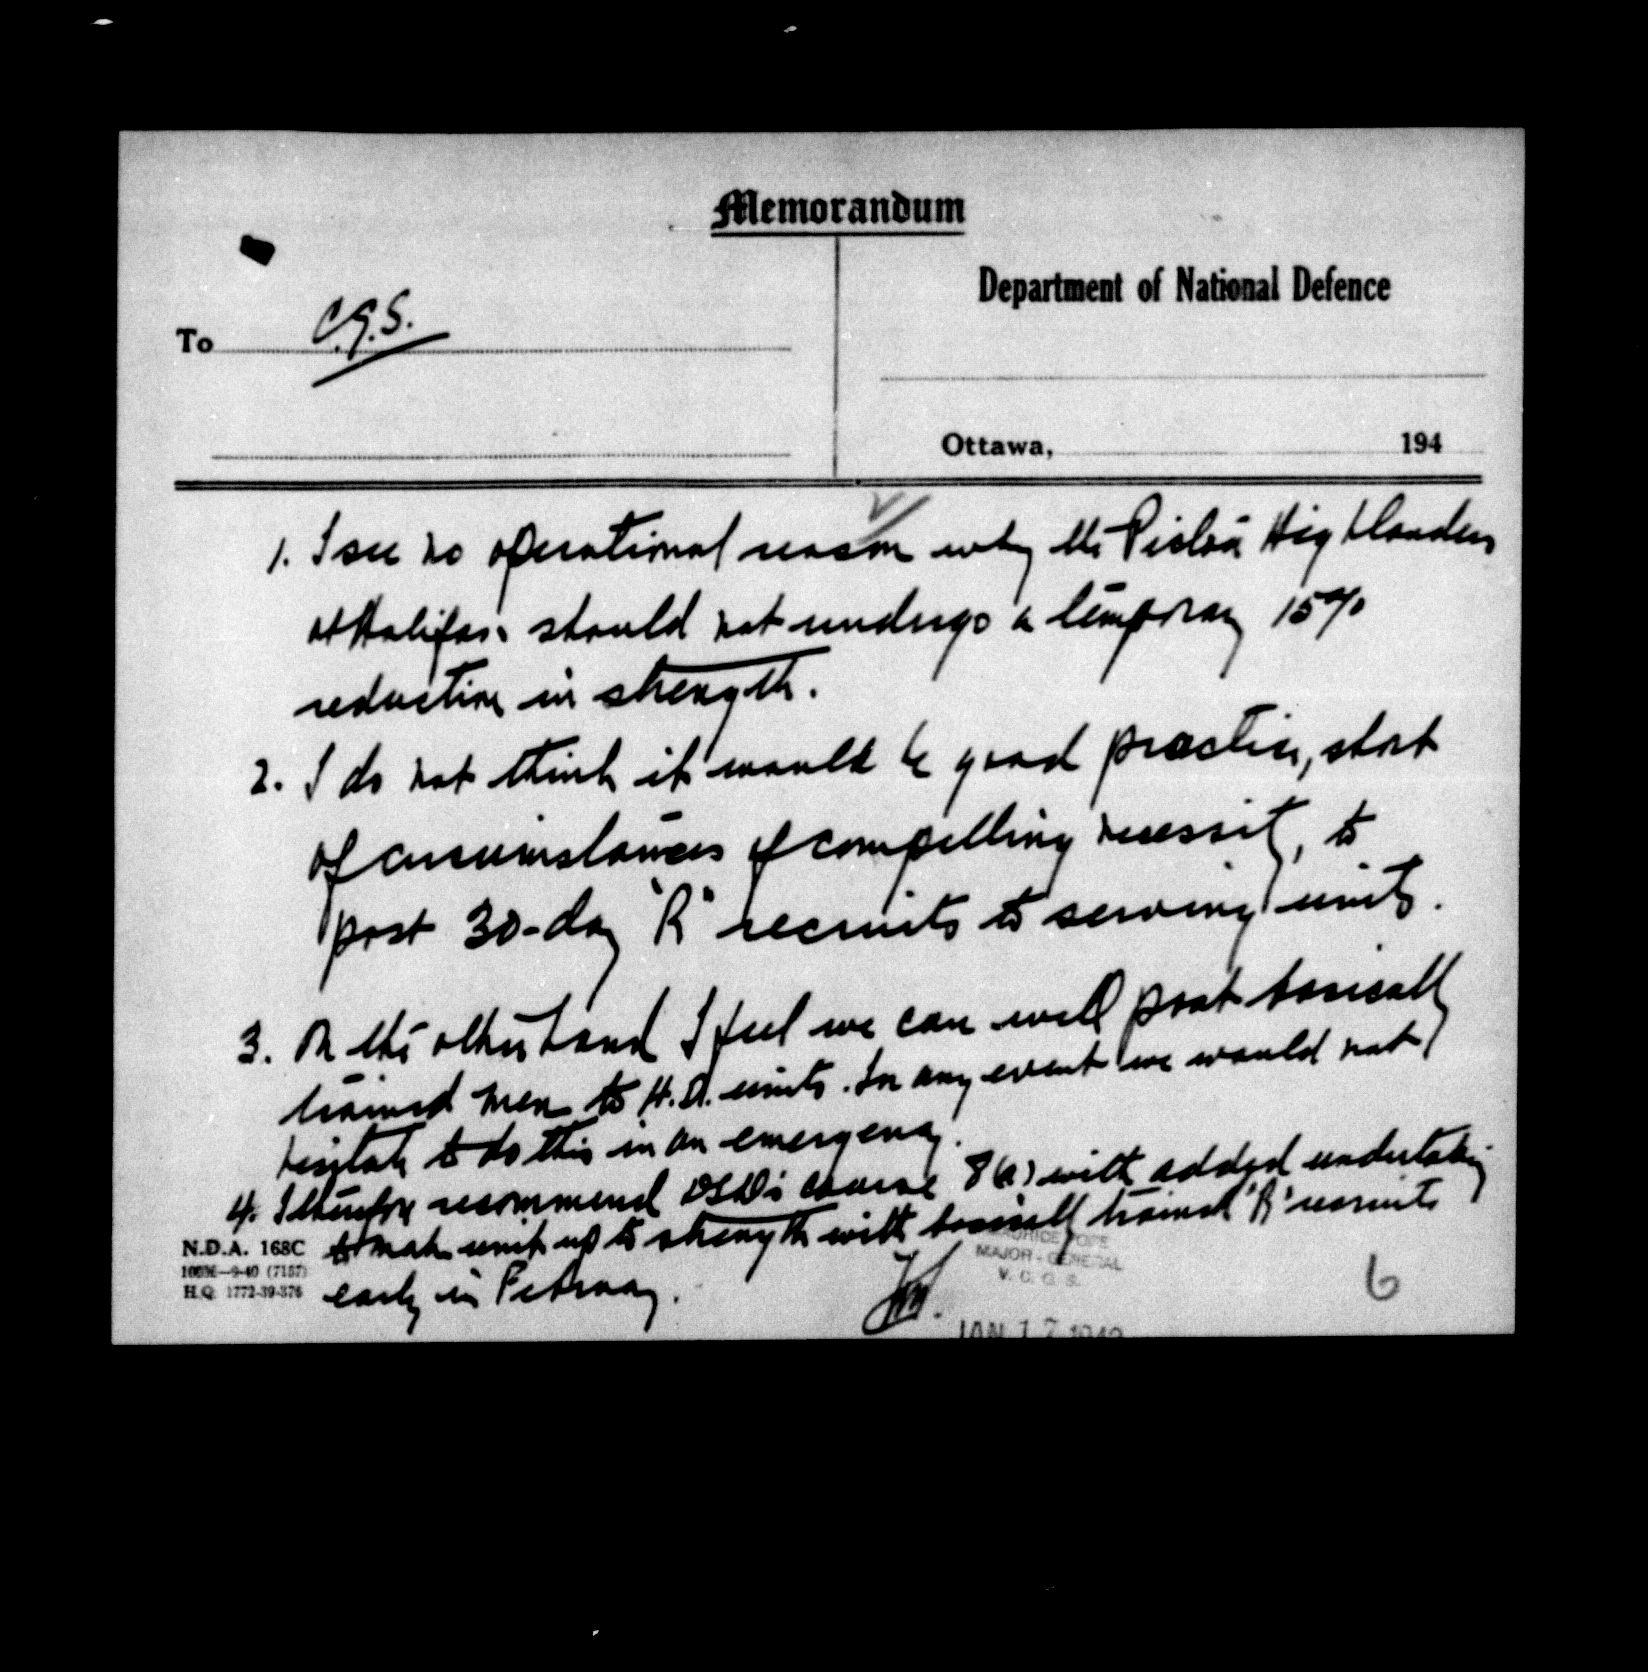 Memorandum
Department of National Defence
To C.G.S.
Ottawa, 194
1. I see no operational reason why the Pictou Highlanders
at Halifax should not undergo a temporary 15%
reduction in strength.
2. I do not think it would be good practice, short
of circumstances of compelling necessity, to
post 30-day "R" recruits to serving units.
3. On the other hand I feel we can well post basically
trained men to H.D. units. In any event we would not
hesitate to do this in an emergency.
4. I therefore recommend DSD's course 8(a) with added undertaking
to make unit up to strength with basically trained "R" recruits
early in February.
N.D.A. 168C
100M—9-40 (7157)
H.Q. 1772-39-376
MAURICE POPE
MAJOR-GENERAL
V. C. G. S.
JAN 17
6